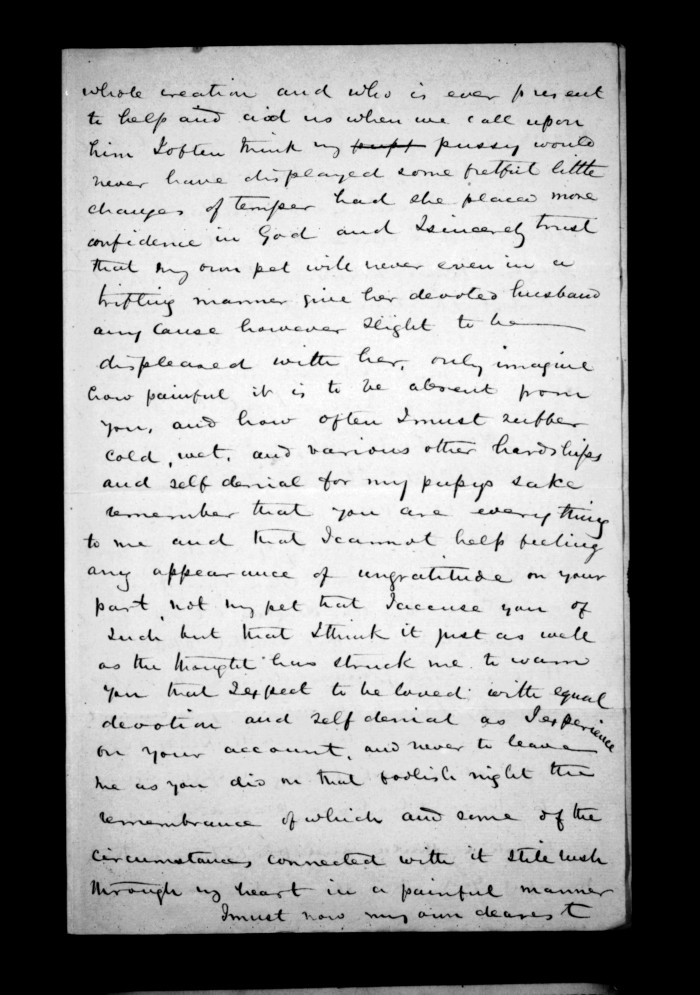 whole creation and who is ever present
to help and aid us when we call upon
him I often think my pussy would
never have displayed some fretful little
changes of temper had she placed more
confidence in God and I sincerely trust
that my own pet will never even in a
trifling manner give her devoted husband
any cause however slight to be
displeased with her, only imagine
how painful it is to be absent from
you, and how often I must suffer
cold, wet, and various other hardships
and self denial for my pupys sake
remember that you are every thing
to me and that I cannot help feeling
any appearance of ungratitude on your
part, not my pet that I accuse you of
such but that I think it just as well
as the thought has struck me to warn
you that I expect to be loved with equal
devotion and self denial as I experience
on your account, and never to leave
me as you did on that foolish night the
remembrance of which and some of the
circumstances connected with it still rush
through my heart in a painful manner
I must now my own dearest